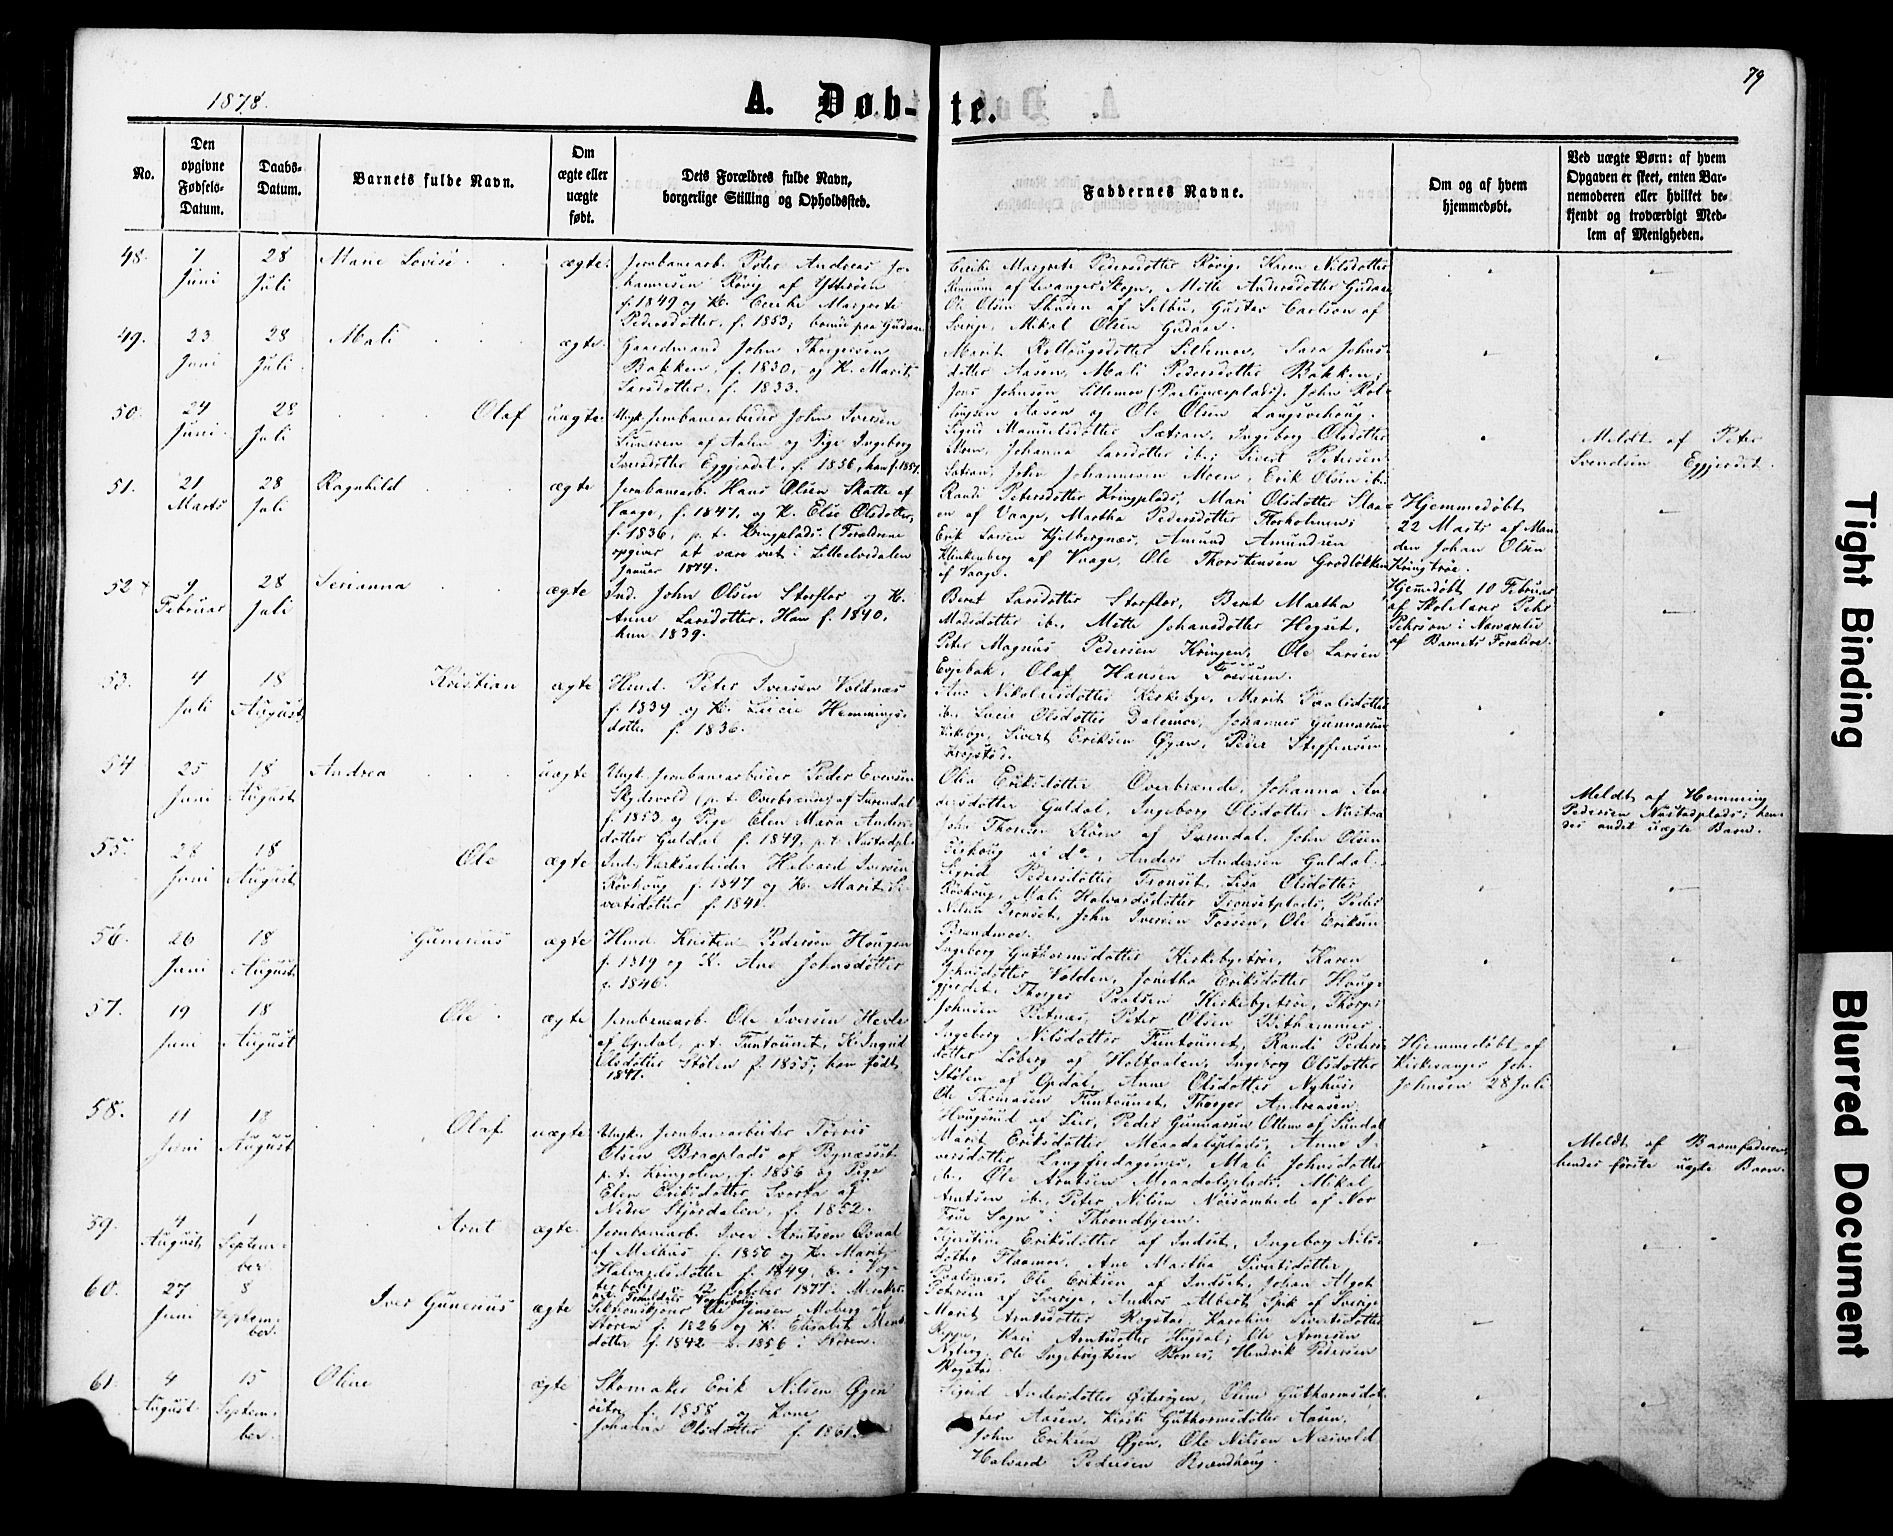 1878.
A. Døb-te.
79
No.
Den opgivne Fødsels-Datum.
Daabs-Datum.
Barnets fulde Navn.
Om ægte eller uægte født.
Dets Forældres fulde Navn, borgerlige Stilling og Opholdssted.
Faddernes Navne.
Om og af hvem hjemmedøbt.
Ved uægte Børn: af hvem Opgaven er skeet, enten Barnemoderen eller hvilket bekjendt og troværdigt Medlem af Menigheden.
48. 7 Juni 28 Juli Marie Lovise ægte.
Jernbanearb. Peter Andreas Jo-
hannesen Røvig af Ytterøen
f. 1849 og K. Margrete
Pedersdotter, f. 1853;
Margrete Pedersdotter Røvig, Karen Nilsdotter
Mette Andersdotter Gudaa
Ole Olsen af Selbu, Gustav Carlson af
Sverige, Mikal Olsen Gudaa.
49. 23 Juni 28 Juli Mali ægte.
Gaardmand John Thorgersen
Bakken, f. 1830, og K. Marit
Larsdotter, f. 1833.
Marit Lillemo, Sara Johns-
dotter Aasen, Mali Pedersdotter Bakken;
Jens Johnsen Lillemo
Aasen og Ole Olsen
50. 24 Juni 28 Juli Olaf uægte
Ungk. Jernbanearbeider John Iversen
af Aalen og Pige Ingeborg
Eggjerdet, f. 1856, han f. 1857.
Sigrid Sætran, Ingeborg Olsdotter
Moen, Johanna Larsdotter ib.; Sivert Petersen
John Johannesen Moen, Erik Olsen ib.
Meldt af Peter
Svendsen Eggjerdet.
51. 21 Marts 28 Juli Ragnhild ægte
Jernbanearb. Hans Olsen Skatte af
Vaage, f. 1847, og K. Else Olsdotter,
f. 1836, p. t. Kringplads. (Forældrene
opgiver at være viet i
Januar 1874.
Randi Petersdotter Kringplads, Mari Olsdotter
af Vaage, Martha Pedersdotter
Erik Larsen Amund Amundsen
Klinkenberg af Vaage, Ole Thorstensen
af Vaage.
Hjemmedøbt
22 Marts af Man-
den Johan Olsen
Kringtrøe.
52 Februar 28 Juli Serianna ægte
Ind. John Olsen Storflor og K.
Anne Larsdotter, Han f. 1840,
hun 1839.
Beret Larsdotter Storflor, Beret Martha
ib., Mette Johansdotter Hegset,
Peter Magnus Pedersen Kringen, Ole Larsen
Evjebak, Olaf Hansen Fossum.
Hjemmedøbt 10 Februar
af Skolelærer Peter
Pehrson i Nærværelse
af Barnets Forældre.
53. 4 Juli 18 August Kristian ægte
Huusmd. Peter Iversen Voldnæs
f. 1839 og K. Lucie Hemmings-
dotter f. 1836.
Ane Nikolaisdotter Kirkeby, Marit Paalsdotter
ib. Lucie Olsdotter Dalemo, Johannes Gunnarsen
Sivert Eriksen Øyan, Peder Steffensen
Krogstad.
54 25 Juni 18 August Andrea uægte
Ungk. Jernbanearbeider Peder Evensen
Skydsvold (p. t. Overbrende) af Surendal
f. 1853 og Pige Elen Maria Anders-
dotter Guldal f. 1849, p. t. Nustadpl.
Olia Eriksdotter Overbrende, Johanna An-
dersdotter Guldal, Ingeborg Olsdotter Nustad
John Thoresen af Surendal, John Olsen
af do, Anders Andersen Guldal.
Meldt af Hemming
Pedersen Nustadplads; hen-
des andet uægte Barn.
55. 28 Juni 18 August Ole ægte
Ind. Værksarbeider Halvard Iversen
Røskoug f. 1847 og K. Marit Si-
vertsdotter f. 1841.
Sigrid Pedersdotter Tronset, Lisa Olsdotter
Røskoug, Mali Halvardsdotter Tronsetplads, Peder
Nilsen Tronset, John Iversen Fossen, Ole Eriksen
Brendmoe.
56. 26 Juni 18 August Gunerius ægte
Huusmd. Kristen Pedersen Hougen
f. 1819 og K. Ane Johnsdotter
f. 1846.
Ingeborg Guthormsdotter Kirkebytrøe, Karen
Johnsdotter Volden, Jonetha Eriksdotter Houg-
gjerdet, Thorger Paulsen Kirkebytrøe, Thorger
Johnsen Peter Olsen
57. 19 Juni 18 August Ole ægte
Jernbanearb. Ole Iversen Hevle
af Opdal, p. t. Funtaunet, K. Ingrid
Olsdotter Stølen f. 1855; han født
1847.
Ingeborg Nilsdotter Funtaunet, Randi Peders-
dotter Løberg af Holtaalen, Ingeborg Olsdotter
Stølen af Opdal, Anne Olsdotter Nyhus,
Ole Thomasen Funtaunet, Thorger Andreasen
Hougsrud af Lier, Peder Gunnarsen Ottem af Sundal
Hjemmedøbt af
Kirkesanger Joh.
Johnsen 28 Juli
58. 11 Juni 18 August Olaf uægte
Ungk. Jernbanearbeider Tørris
Olsen Braaplads af Bynæsset
p. t. Kringelen, f. 1856 og Pige
Elen Eriksdotter Svorka af
Nedre Stjørdalen, f. 1852.
Marit Eriksdotter Meaadalsplads, Anne I-
versdotter Mali Johnsdotter
ib., Ole Arntsen Meaadalsplads, Mikal
Arntsen ib., Peter Nilsen
Sogn i Throndhjem.
Meldt af Barnefaderen,
hendes første uægte Barn.
59. 4 August 1 September Arnt ægte.
Jernbanearb. Iver Arntsen
af Melhus f. 1850 og K. Marit
Halvardsdotter f. 1849,
12 October 1877.
Kjerstine Eriksdotter af Indset, Ingeborg Nils-
dotter Flaamo, Ane Martha Sivertsdotter
Ole Eriksen af Indset, Johan Algot
Petersen af Sverige, Anders Albert af Sverige
60. 27 Juni 8 September Iver Gunerius ægte
Ole Jensen Moberg af
Støren f. 1826 og K. Elisabet
dotter f. 1842 1856 i Støren.
Marit Arntsdotter Rogstad, Karoline Sivertsdotter
Reppe, Kari Arntsdotter Hugdal; Ole Arnesen
Nyberg, Ole Ingebrigtsen Bones, Hendrik Pedersen
Rogstad
61. 4 August 15 September Oline ægte
Skomaker Erik Nilsen Øyen
f. 1858 og Kone
Johanna Olsdotter f. 1861.
Sigrid Andersdotter Østerøyen, Oline Guthormsdot-
ter Aasen, Kirsti Guthormsdotter Aasen,
John Eriksen Øyen, Ole Nilsen Næsvold
Halvard Pedersen Brændhoug.
Tight Binding
Blurred Document